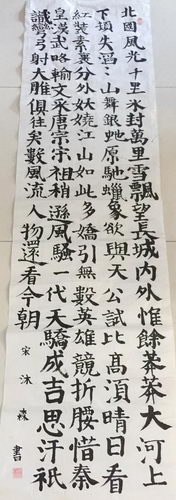 北國風光千里冰封萬里雪飄望長城內外惟餘莽莽大河上
下頓失滔々山舞銀蛇原馳蠟象欲與天公試比高須晴日看
紅裝素裹分外妖嬈江山如此多嬌引無數英雄競折腰惜秦
皇漢武略輸文采唐宗宋祖稍遜風騷一代天驕成吉思汗祇
識彎弓射大雕俱往矣數風流人物還看今朝
宋沐森書